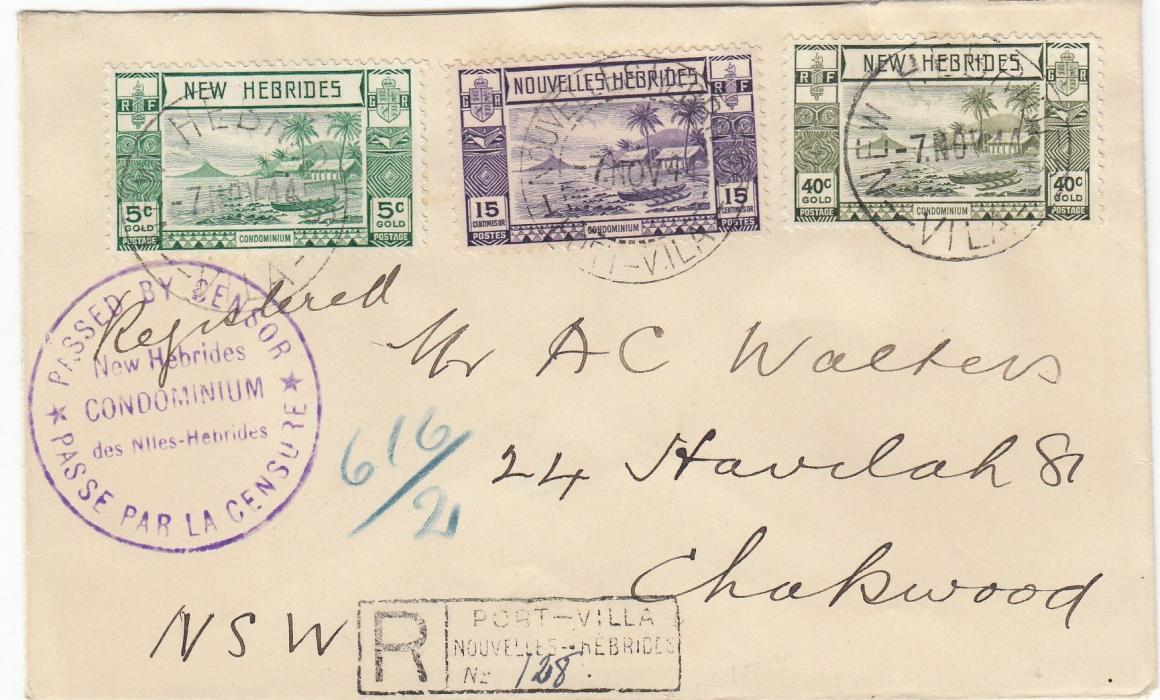 NEW HEBRIDES
R F
G R
5c GOLD
5c GOLD
POSTAGE
CONDOMINIUM
POSTAGE
NOUVELLES HEBRIDES
G R
R F
15 CENTIMES OR
15 CENTIMES OR
POSTES
CONDOMINIUM
POSTES
NEW HEBRIDES
R F
G R
40c GOLD
40c GOLD
POSTAGE
CONDOMINIUM
POSTAGE
7 NOV 44
-VILA-
7. NOV 44
PORT-VILA
NEW HEBRIDES
7. NOV 44
VILA
PASSED BY CENSOR
New Hebrides
CONDOMINIUM
des Nlles-Hebrides
PASSE PAR LA CENSURE
Registered
Mr A C Walters
24 Havilah St
Chatswood
NSW
616/2
R
PORT-VILLA
NOUVELLES-HÉBRIDES
No 128.